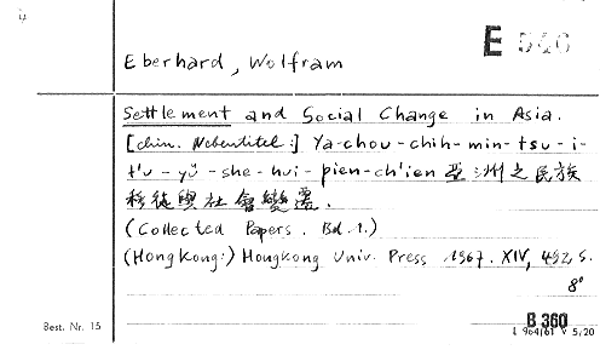 E 546
Eberhard, Wolfram
Settlement and Social Change in Asia.
[chin. Nebentitel:] Ya-chou-chih-min-tsu-i-
t'u-yü-she-hui-pien-ch'ien 亞洲之民族
移徙與社會變遷.
(Collected Papers. Bd. 1.)
(Hongkong:) Hongkong Univ. Press 1967. XIV, 492 S.
8°
B 360
Best. Nr. 15
L 964/61 V 5/20